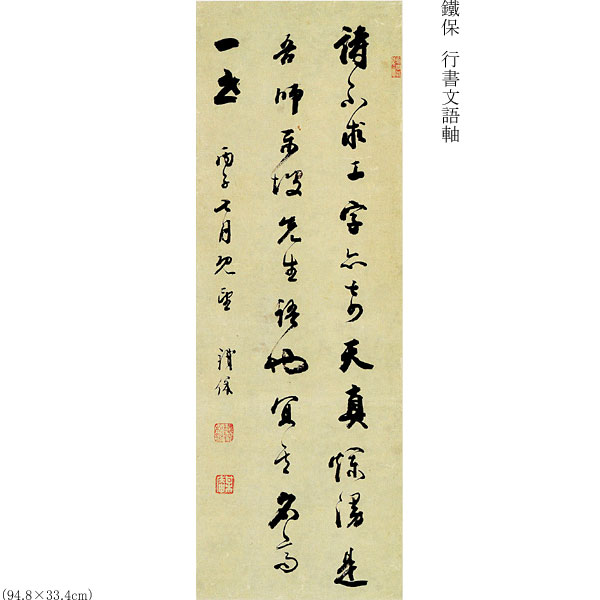 鐵保 行書文語軸
詩不求工字不奇天真爛漫是
吾師東坡先生語也宜其名高
一世 丙子七月既望 鐵保
(94.8×33.4cm)